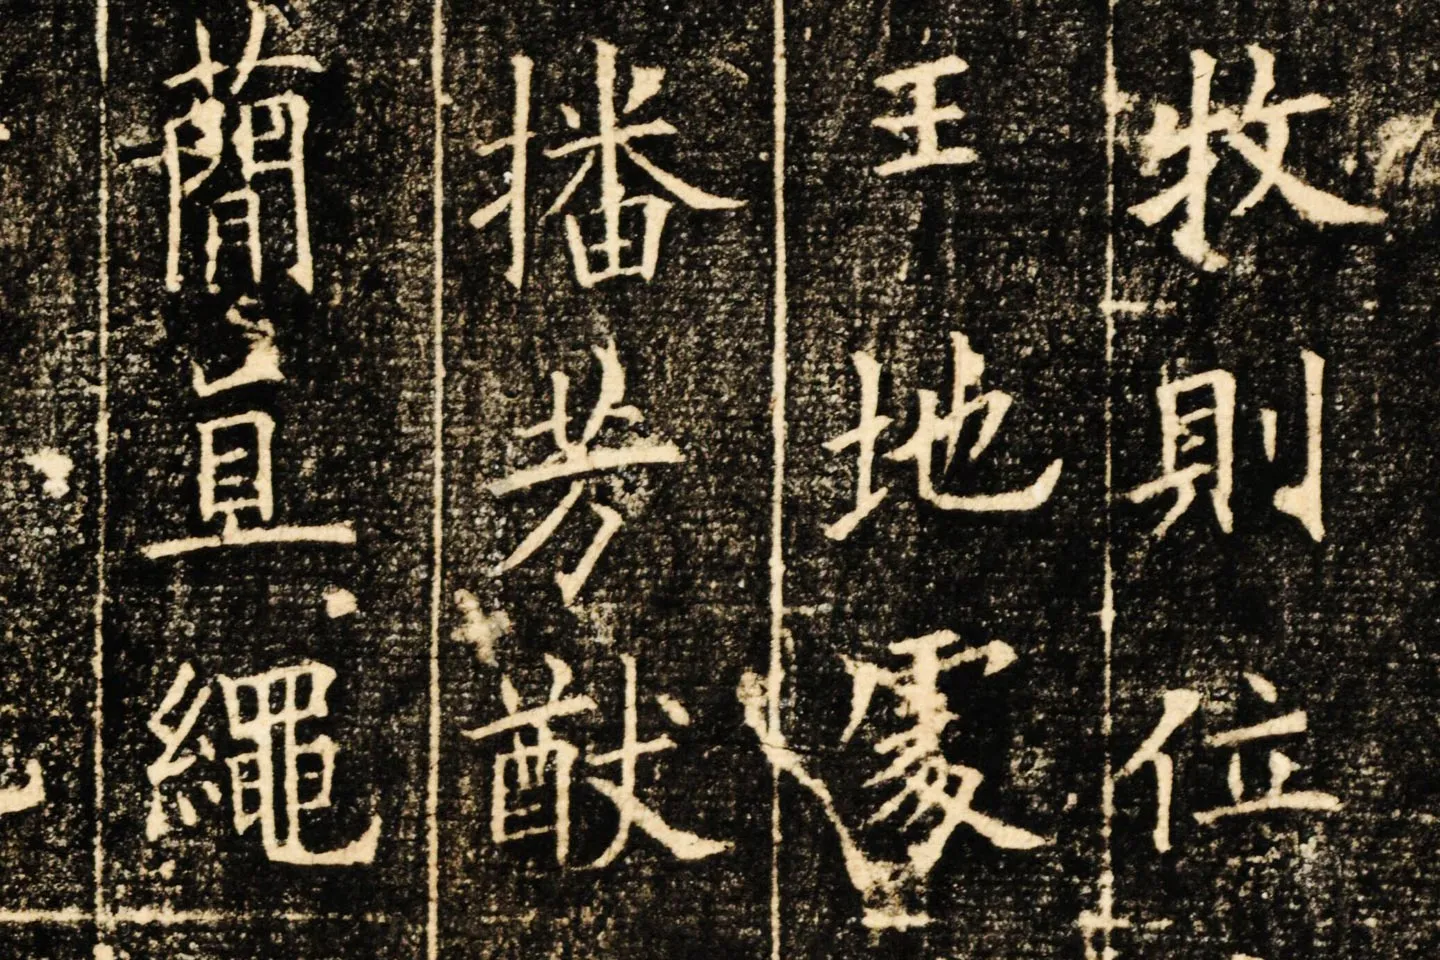 牧則位
王地處
播芳猷
蕳直繩